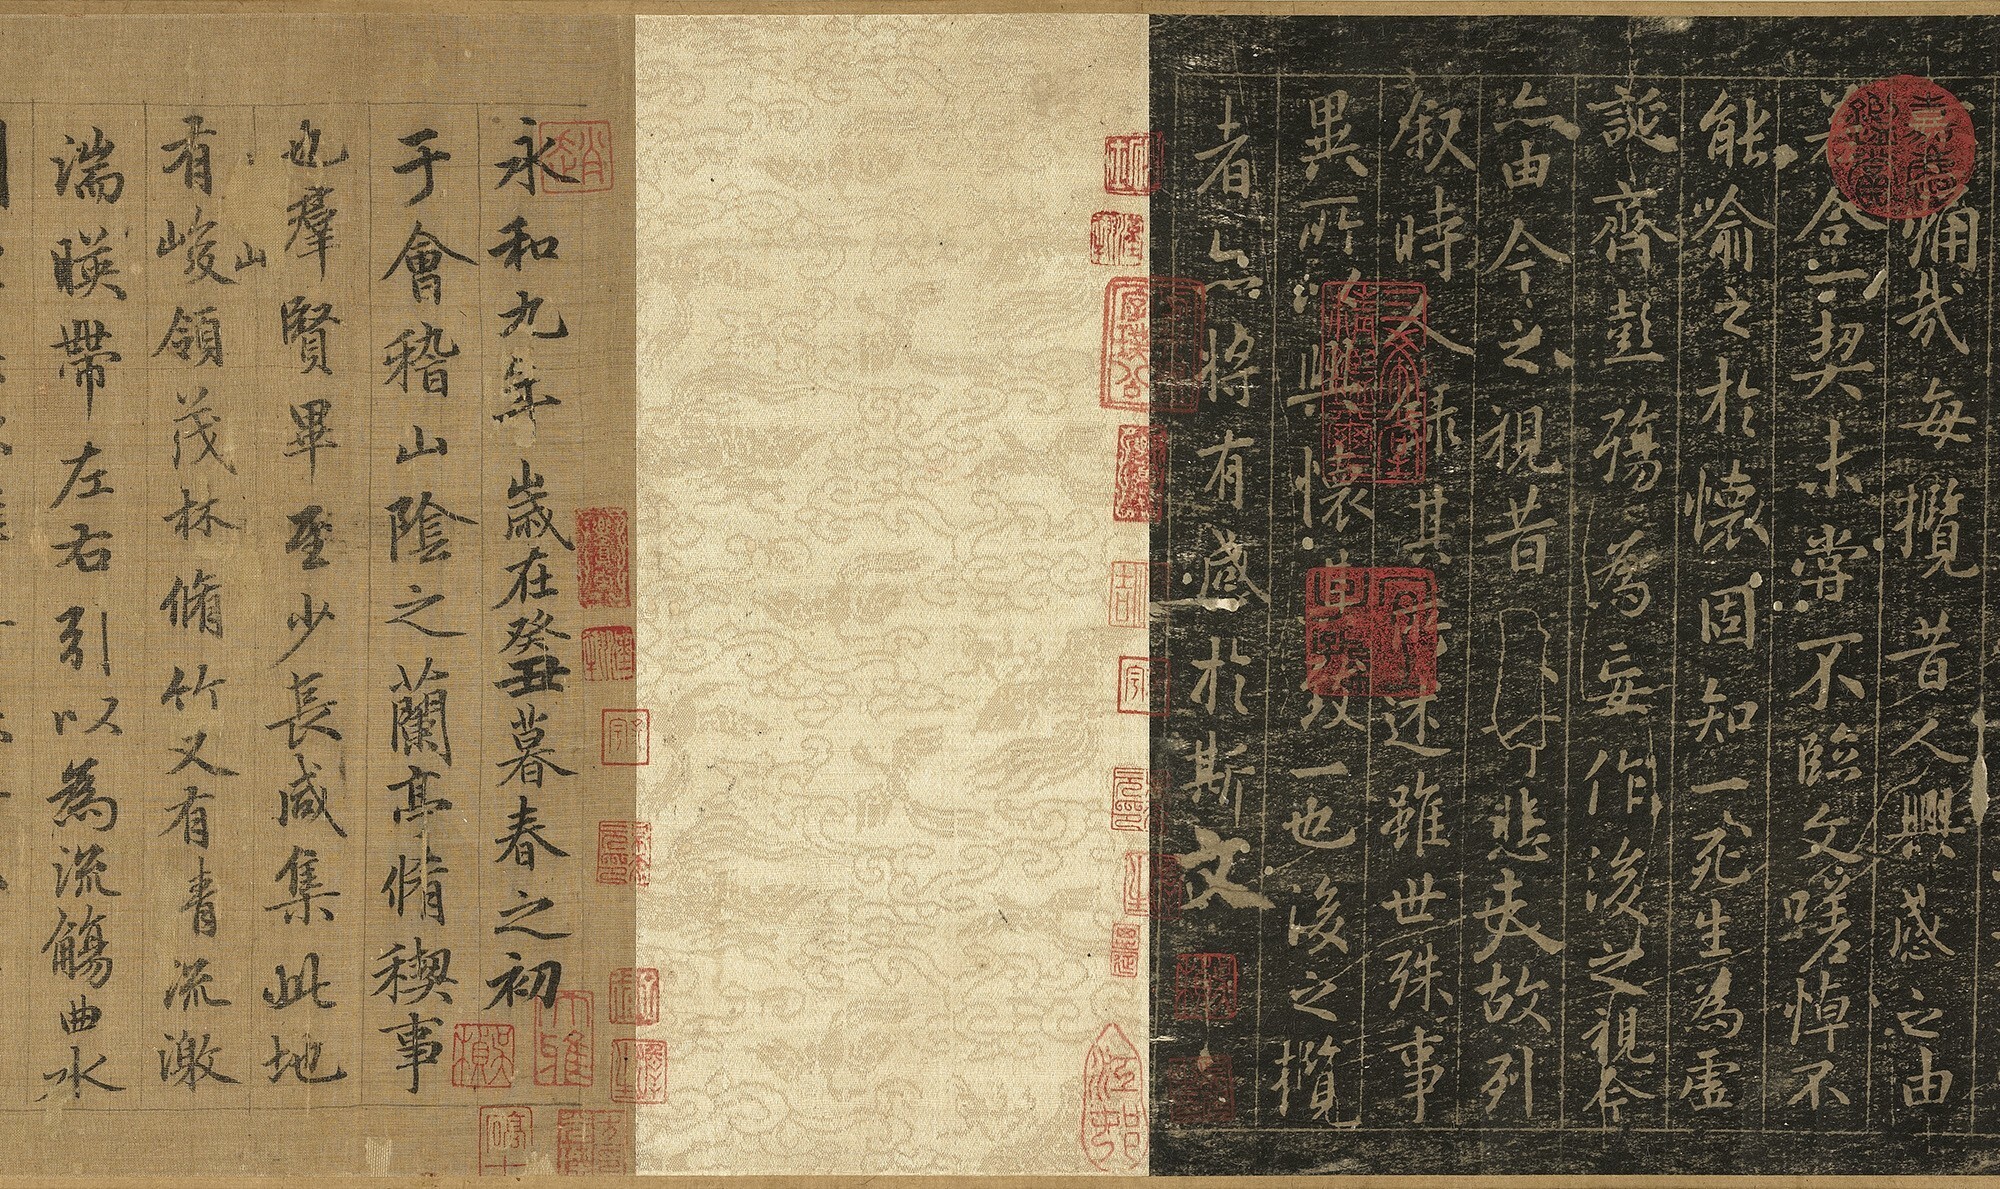 痛哉每攬昔人興感之由
若合一契未嘗不臨文嗟悼不
能喻之於懷固知一死生為虛
誕齊彭殤為妄作後之視今
亦由今之視昔悲夫故列
叙時人錄其所述雖世殊事
異所以興懷其致一也後之攬
者亦將有感於斯文
永和九年歲在癸丑暮春之初
于會稽山陰之蘭亭脩稧事
也羣賢畢至少長咸集此地
山
有峻領茂林脩竹又有清流激
湍暎帶左右引以為流觴曲水